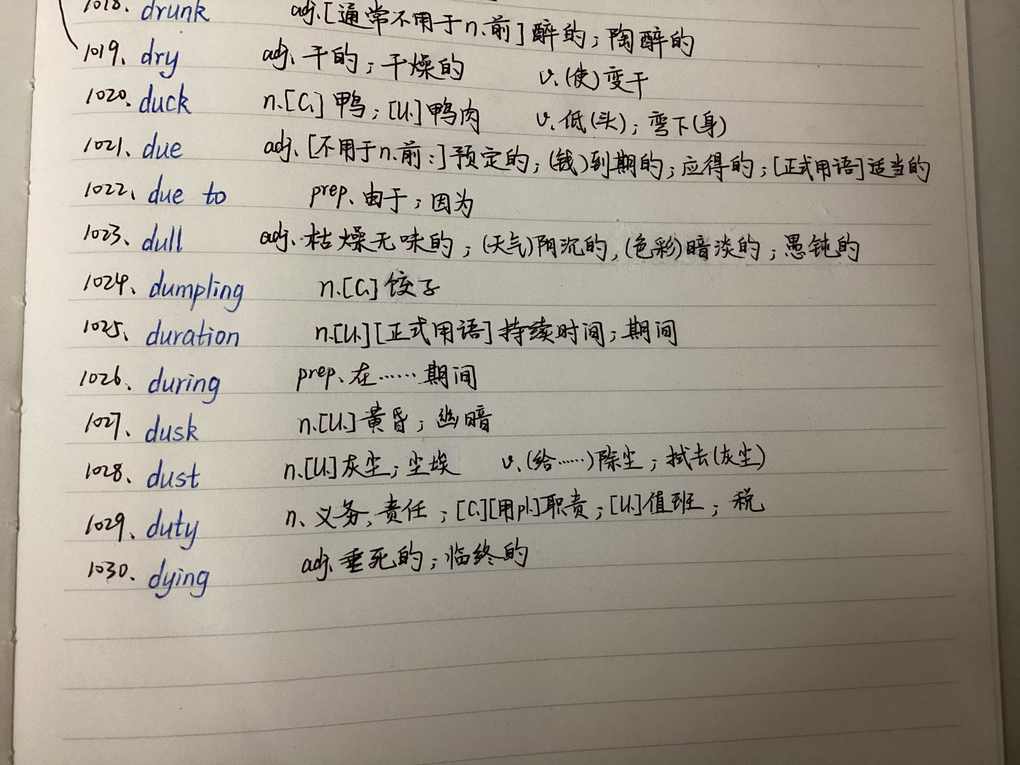 1018、drunk adj.[通常不用于n.前]醉的；陶醉的
1019、dry adj.干的；干燥的 v.(使)变干
1020、duck n.[C.]鸭；[U.]鸭肉 v.低(头)；弯下(身)
1021、due adj.[不用于n.前:]预定的；(钱)到期的；应得的；[正式用语]适当的
1022、due to prep.由于；因为
1023、dull adj.枯燥无味的；(天气)阴沉的,(色彩)暗淡的；愚钝的
1024、dumpling n.[C.]饺子
1025、duration n.[U.][正式用语]持续时间；期间
1026、during prep.在……期间
1027、dusk n.[U.]黄昏；幽暗
1028、dust n.[U.]灰尘；尘埃 v.(给……)除尘；拭去(灰尘)
1029、duty n.义务,责任；[C.][用pl.]职责；[U.]值班；税
1030、dying adj.垂死的；临终的